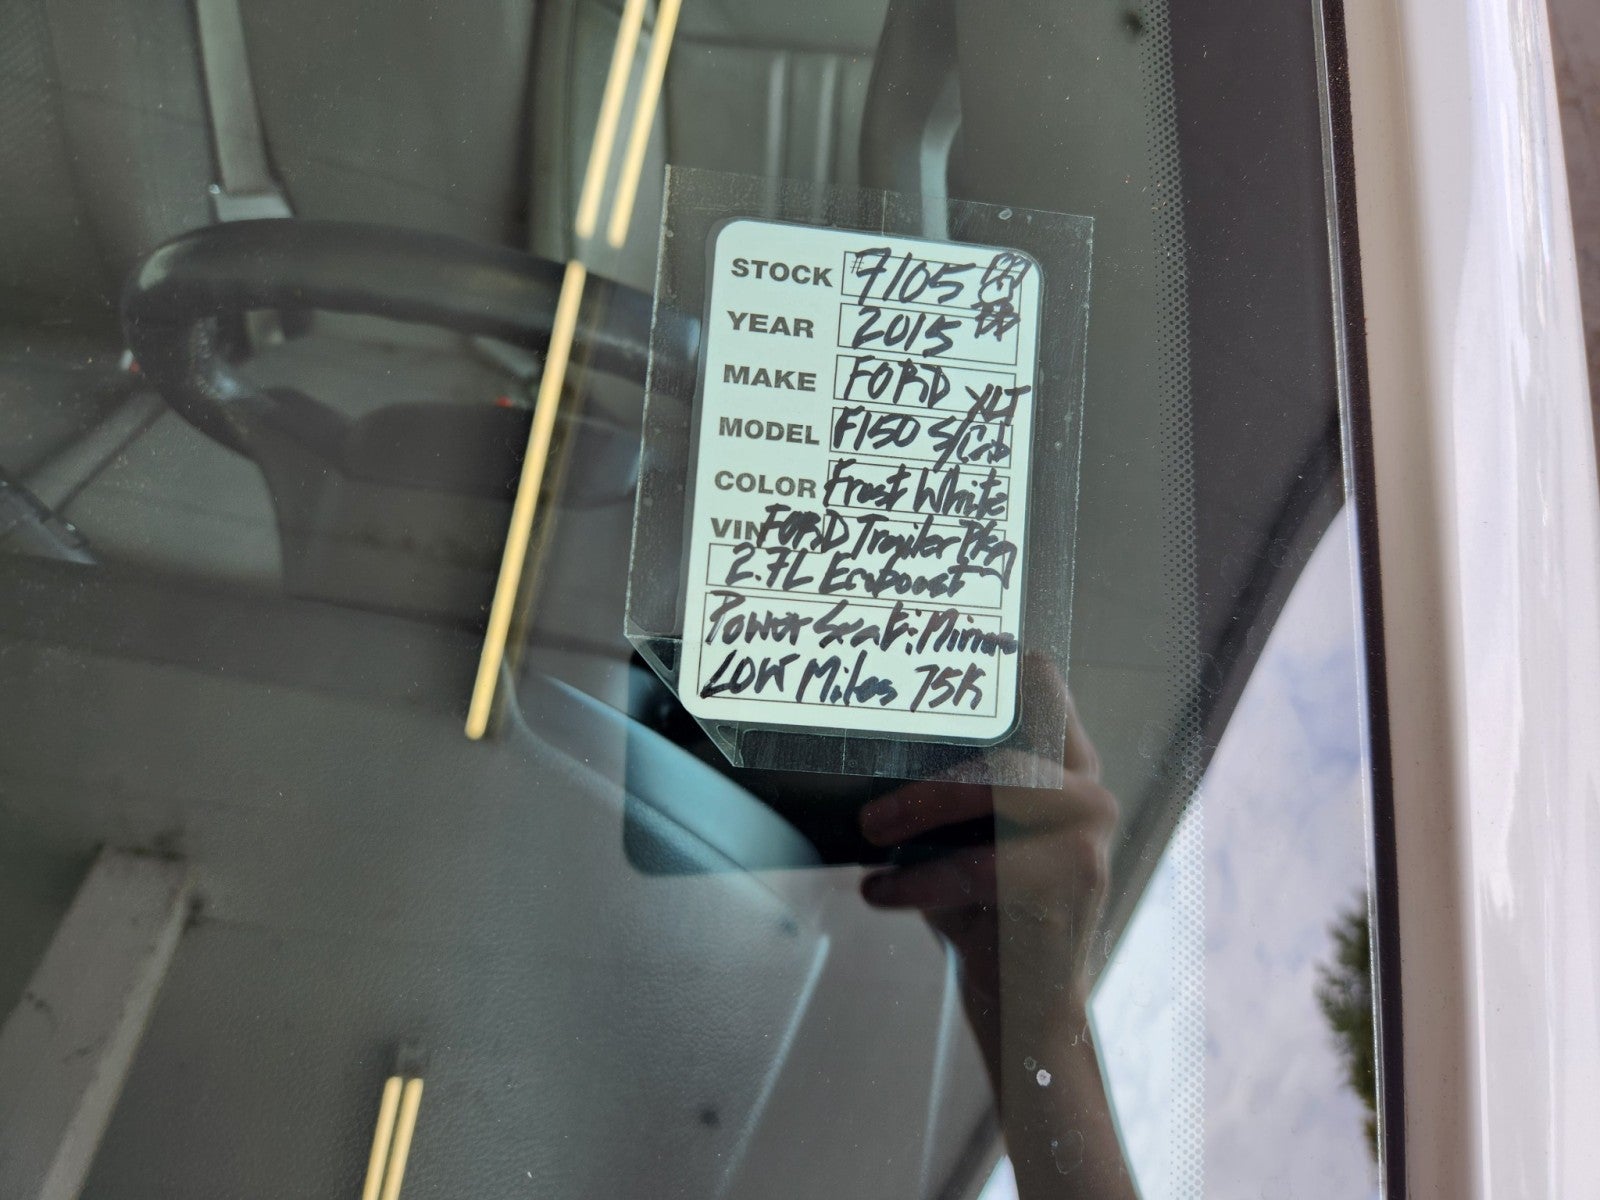 STOCK #7105
YEAR 2015
MAKE FORD XLT
MODEL F150 S/Cab
COLOR Frost White
VIN FORD Trailer Pkg
2.7L Ecoboost
Power Seat: Mirrors
LOW Miles 75K